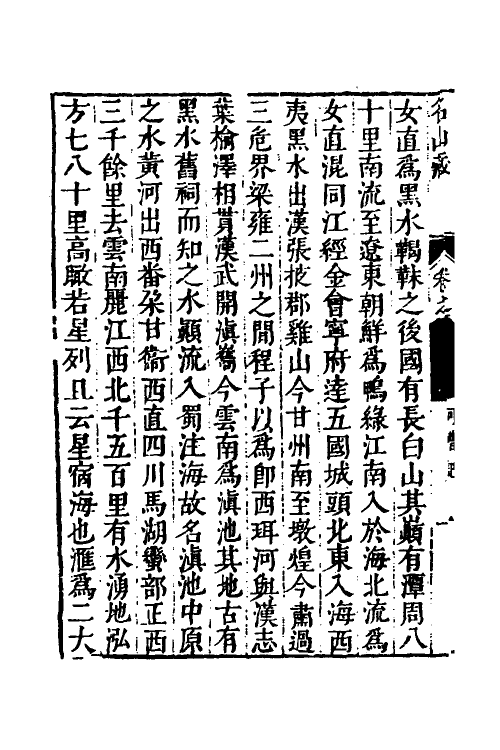 名山藏
卷之
女直爲黑水鞨靺之後國有長白山其巔有潭周八
十里南流至遼東朝鮮爲鴨綠江南入於海北流爲
女直混同江經金會寧府達五國城頭北東入海西
夷黑水出漢張掖郡雞山今甘州南至墩煌今肅過
三危界梁雍二州之間程子以爲卽西珥河與漢志
葉榆澤相貫漢武開滇嶲今雲南爲滇池其地古有
黑水舊祠而知之水顛流入蜀注海故名滇池中原
之水黃河出西番朶甘衞西直四川馬湖蠻部正西
三千餘里去雲南麗江西北千五百里有水湧地泓
方七八十里高瞰若星列且云星宿海也滙爲二大